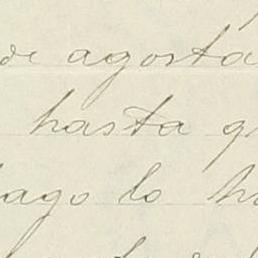 de agosta
hasta q
hago lo h